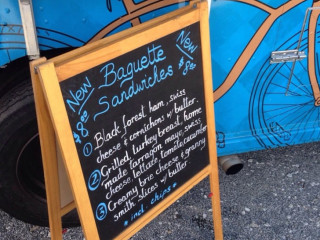 New Baguette New
$8.00 Sandwiches $8.00
① Black forest ham, swiss
cheese & cornichons w/ butter.
② Grilled turkey breast, home
made tarragon mayo, swiss
cheese, lettuce, tomato, cucumber
③ Creamy brie cheese & granny
smith slices w/ butter
* incl. chips *